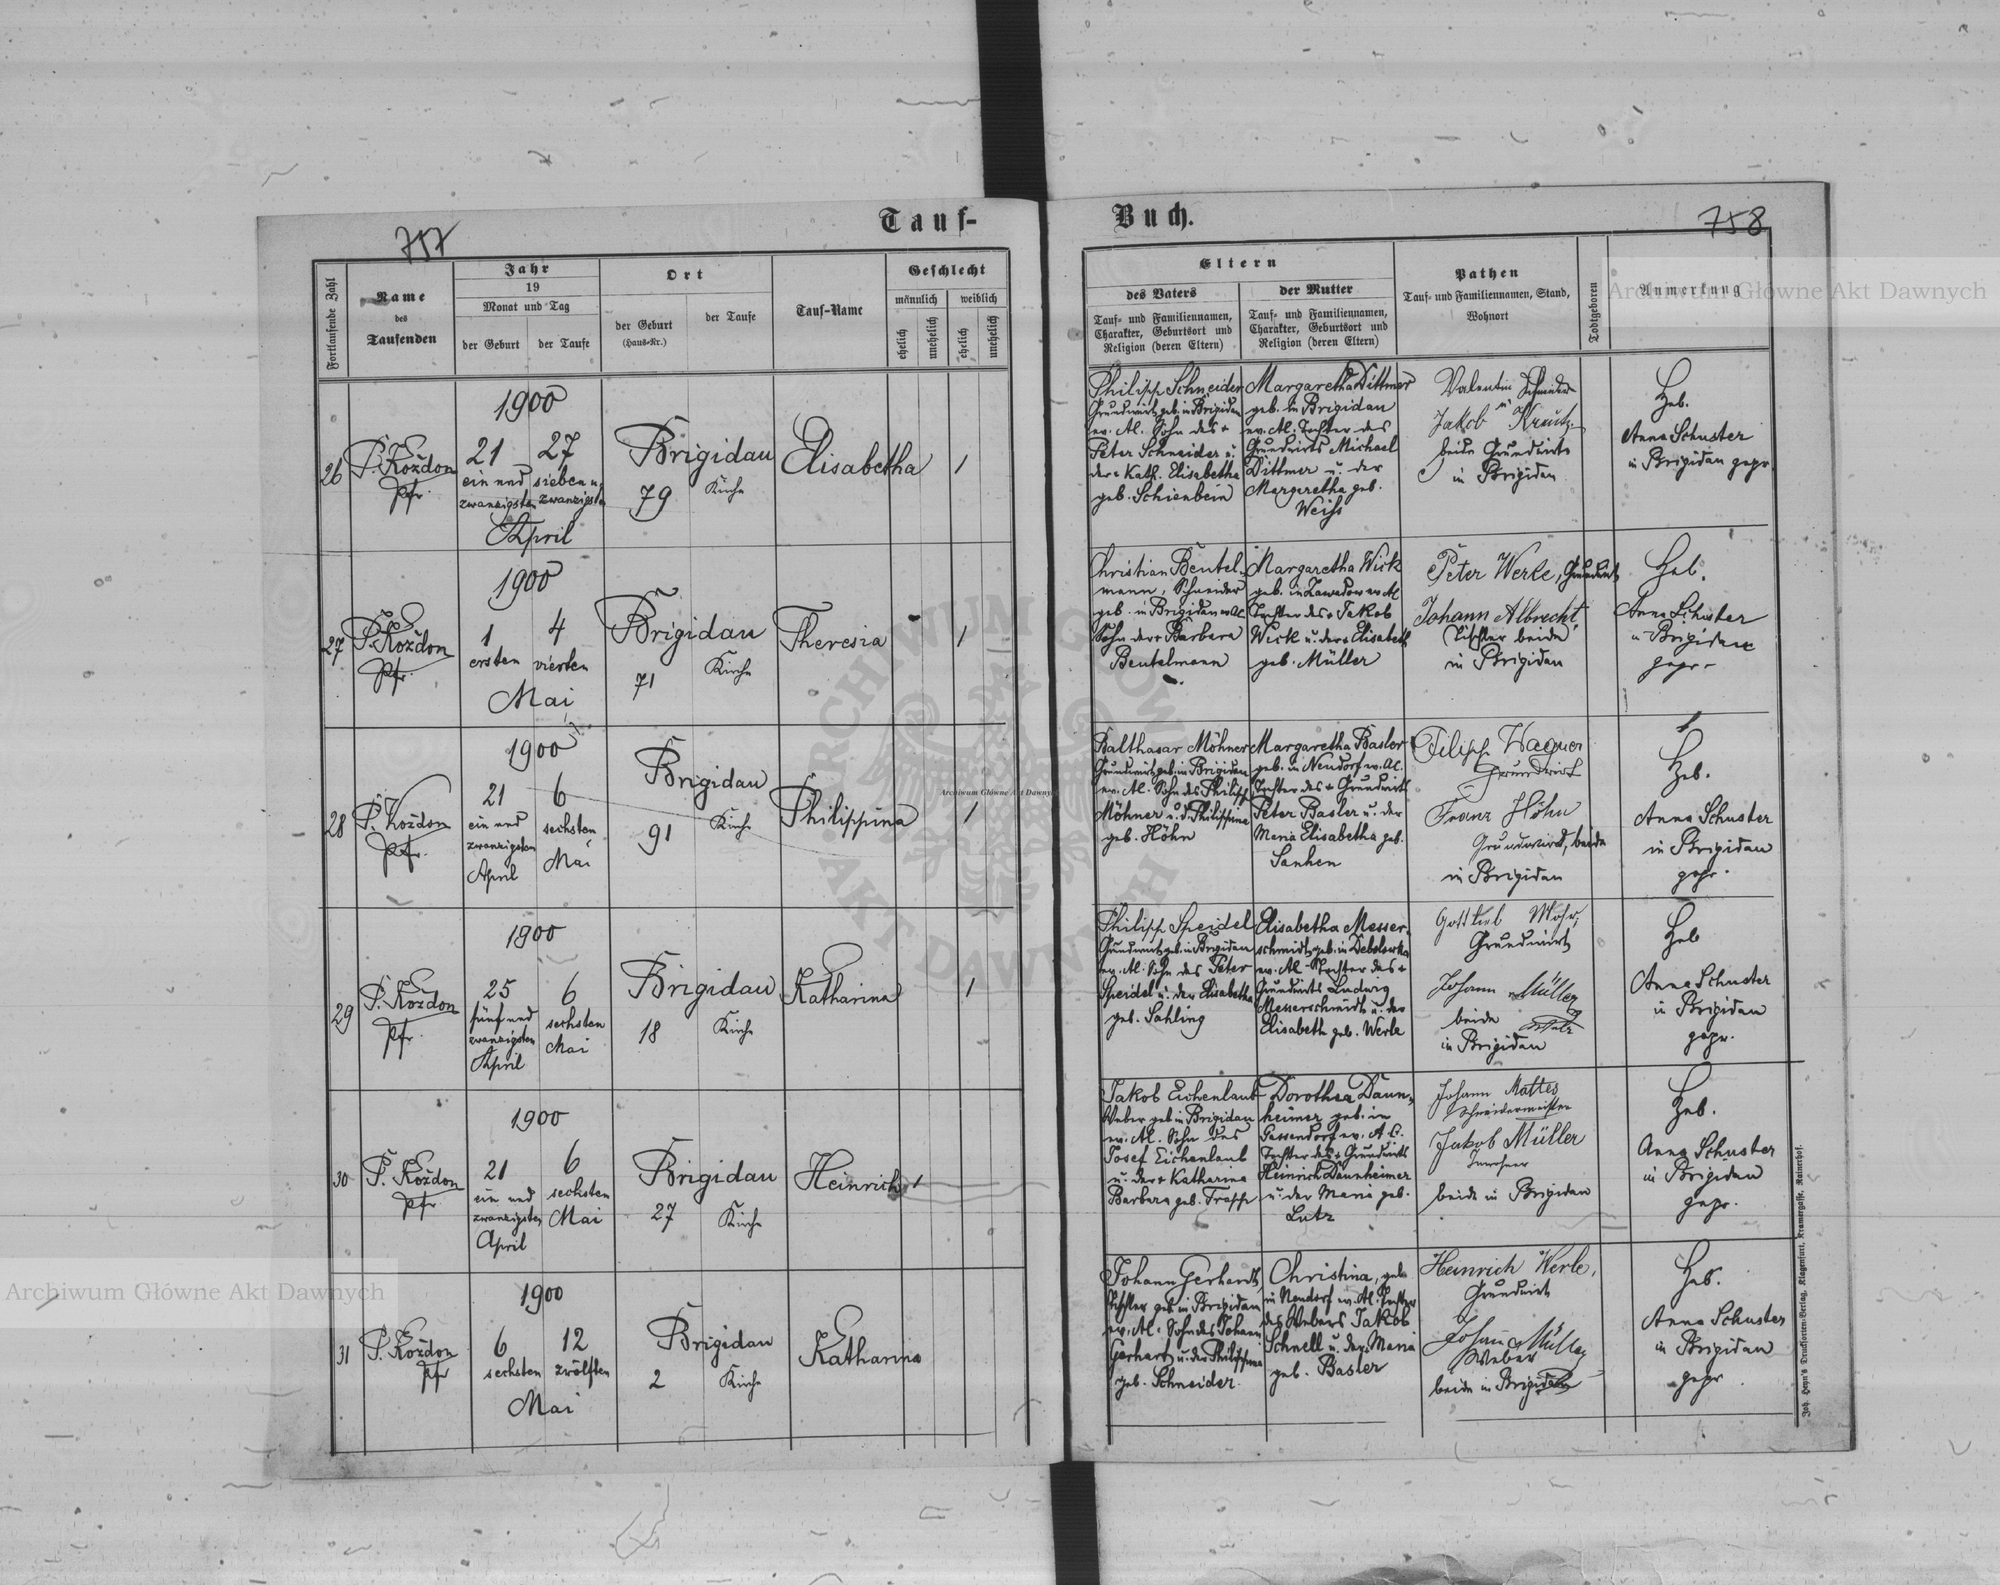 Tauf-
Buch.
757
758
Fortlaufende Zahl
Name
des
Taufenden
Jahr
19
Monat und Tag
der Geburt
der Taufe
Ort
der Geburt
(Haus-Nr.)
der Taufe
Tauf-Name
Geschlecht
männlich
weiblich
ehelich
unehelich
ehelich
unehelich
Eltern
des Vaters
Tauf- und Familiennamen,
Charakter, Geburtsort und
Religion (deren Eltern)
der Mutter
Tauf- und Familiennamen,
Charakter, Geburtsort und
Religion (deren Eltern)
Pathen
Tauf- und Familiennamen, Stand,
Wohnort
Todtgeboren
Anmerkung
26
P. Koždon
Pfr.
1900
21
ein und
zwanzigsten
27
sieben u.
zwanzigsten
April
Brigidau
79
Kirche
Elisabetha
1
Philipp Schneider
Grundwirt geb. in Brigidau
ev. Al. Sohn des +
Peter Schneider u.
der + Kath. Elisabetha
geb. Schienbein
Margaretha Dittmer
geb. in Brigidau
ev. Al. Tochter des
Grundwirts Michael
Dittmer u. der
Margaretha geb.
Weiss
Valentin Schneider
u.
Jakob Krautz
beide Grundwirte
in Brigidau
Heb.
Anna Schuster
in Brigidau gepr.
27
P. Koždon
Pfr.
1900
1
ersten
4
vierten
Mai
Brigidau
71
Kirche
Theresia
1
Christian Beutel-
mann, Schneider
geb. in Brigidau ev. Al.
Sohn der + Barbara
Beutelmann
Margaretha Wick
geb. in Zawadow ev. Al
Tochter des + Jakob
Wick u. der + Elisabeth
geb. Müller
Peter Werle, Grundwirt
Johann Albrecht,
Tischler beide
in Brigidau
Heb.
Anna Schuster
in Brigidau
gepr.
28
P. Koždon
Pfr.
1900
21
ein und
zwanzigsten
April
6
sechsten
Mai
Brigidau
91
Kirche
Philippina
1
Balthasar Möhner
Grundwirt geb. in Brigidau
ev. Al. Sohn des Philipp
Möhner u. d. Philippina
geb. Höhn
Margaretha Basler
geb. in Neudorf ev. Al.
Tochter des + Grundwirts
Peter Basler u. der
Maria Elisabetha geb.
Filipp Wagner
Grundwirt
Franz Höhn
Grundwirt, beide
in Brigidau
Heb.
Anna Schuster
in Brigidau
gepr.
29
P. Koždon
Pfr.
1900
25
fünf und
zwanzigsten
April
6
sechsten
Mai
Brigidau
18
Kirche
Katharina
1
Philipp Speidel
Grundwirt geb. in Brigidau
ev. Al. Sohn des Peter
Speidel u. der Elisabetha
geb. Sahling
Elisabetha Messer-
schmidt, geb. in
ev. Al. Tochter des +
Grundwirts Ludwig
Messerschmidt u. der
Elisabeth geb. Werle
Gottlieb Mohr,
Grundwirt
Johann Müller
beide
in Brigidau
Heb
Anna Schuster
in Brigidau
gepr.
30
P. Koždon
Pfr
1900
21
ein und
zwanzigsten
April
6
sechsten
Mai
Brigidau
27
Kirche
Heinrich
1
Jakob Eichenlaub
Weber geb. in Brigidau
ev. Al. Sohn des
Josef Eichenlaub
u. der + Katharina
Barbara geb.
Dorothea Daun-
heimer geb. in
Gassendorf ev. A. C.
Tochter des + Grundwirts
Heinrich Daunheimer
u. der Maria geb.
Lutz
Johann Mattes
Schneidermeister
Jakob Müller
Inwohner
beide in Brigidau
Heb.
Anna Schuster
in Brigidau
gepr.
31
P. Koždon
Pfr
1900
6
sechsten
12
zwölften
Mai
Brigidau
2
Kirche
Katharina
Johann Gerhardt,
Tischler geb. in Brigidau
ev. Al. Sohn des Johann
Gerhart u. der Philippina
geb. Schneider.
Christina, geb.
in Neudorf ev. Al. Tochter
des Webers Jakob
Schnell u. der Maria
geb. Basler
Heinrich Werle,
Grundwirt
Johann Müller
Weber
beide in Brigidau
Heb.
Anna Schuster
in Brigidau
gepr
Joh. Heyn's Drucksorten-Verlag, Klagenfurt, Kramergasse, Rainerhof.
Archiwum Główne Akt Dawnych
Archiwum Główne Akt Dawnych
Archiwum Główne Akt Dawnych
ARCHIWUM GŁÓWNE
AKT DAWNYCH